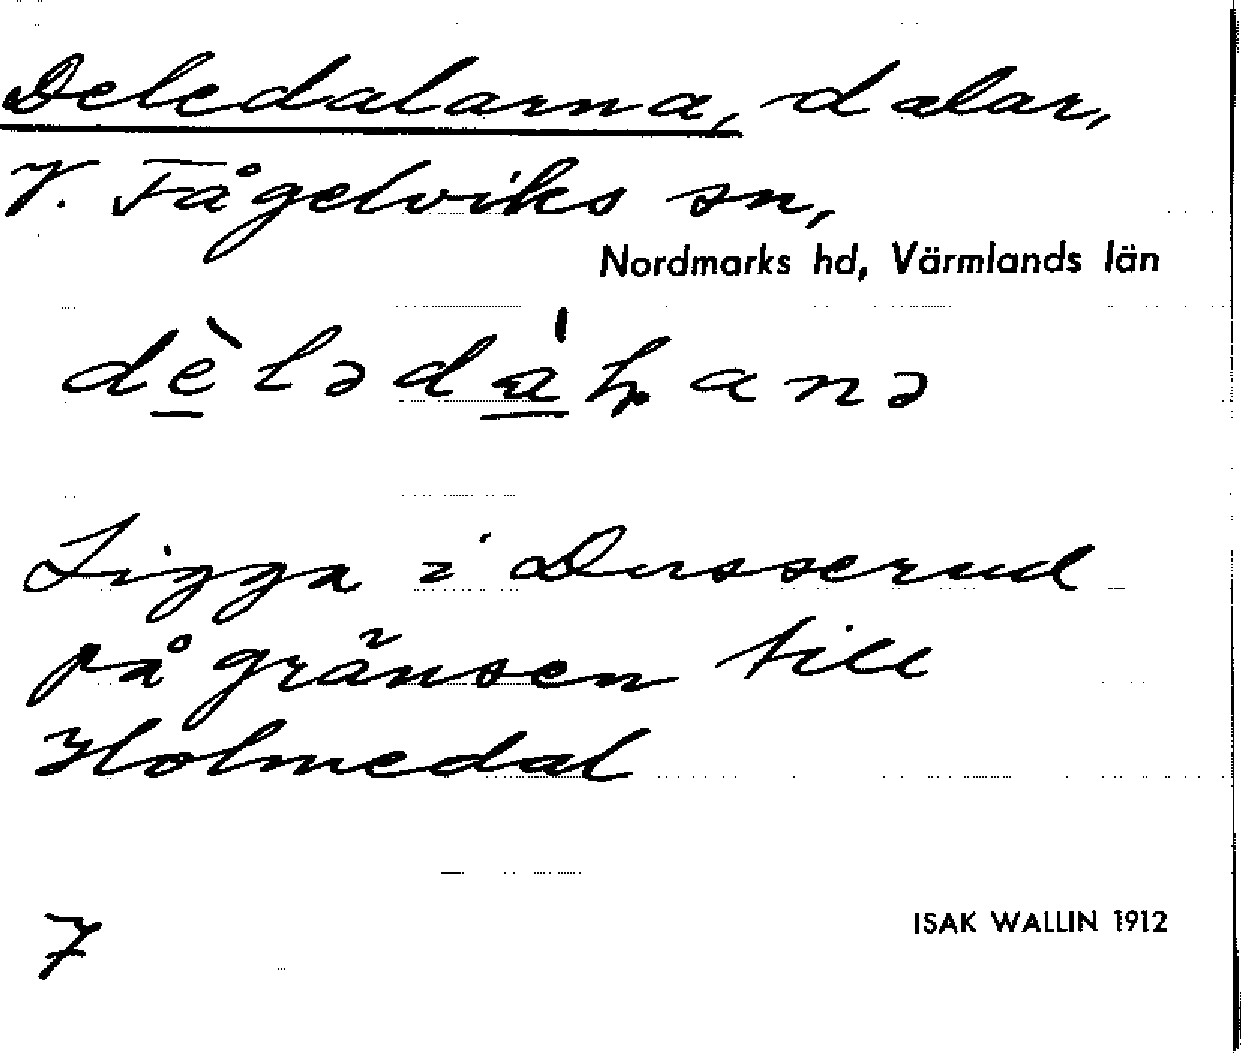 Deledalarna, dalar,
V. Fågelviks sn,
Nordmarks hd, Värmlands län
dèlədáɽanə
Ligga i Dusserud
på gränsen till
Holmedal
7
ISAK WALLIN 1912